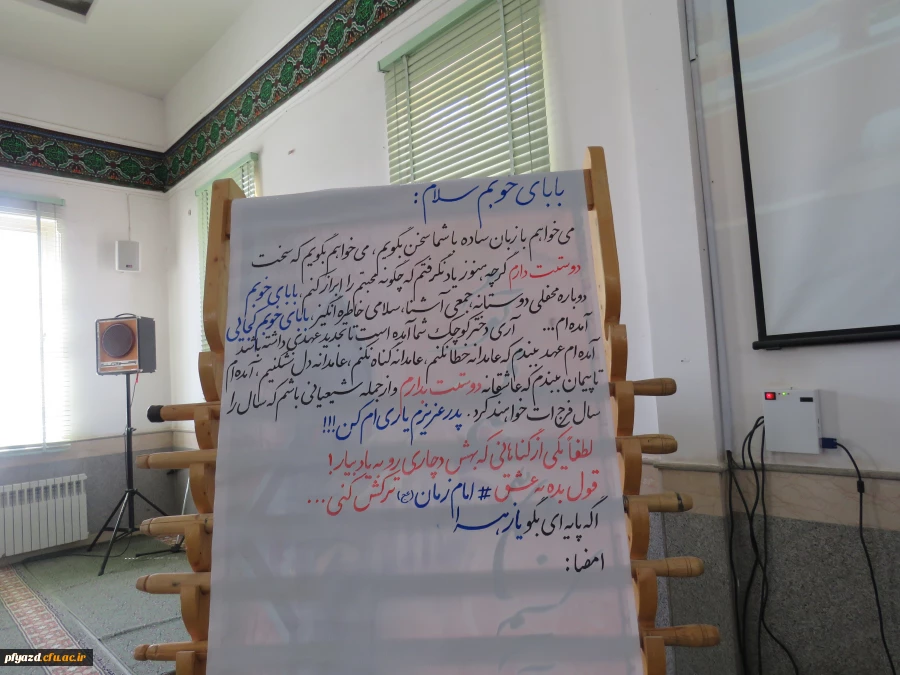 بابای خوبم سلام:
می خواهم با زبان ساده با شما سخن بگویم، می خواهم بگویم که سخت
دوستت دارم گرچه هنوز یاد نگرفتم که چگونه محبتم را ابراز کنم، بابای خوبم
دوباره محفلی دوستانه، جمعی آشنا، سلامی خاطره انگیز، بابای خوبم کجایی
آمده ام... آری دختر کوچک شما آمده است تا تجدید عهدی داشته باشد
آمده ام عهد ببندم که عامدانه خطا نکنم، عامدانه گناه نکنم، عامدانه دل نشکنم، آمده ام
تا پیمان ببندم که عاشقانه دوستت بدارم و از جمله شیعیانی باشم که سال را
سال فرج ات خواهند کرد. پدر عزیزم یاری ام کن!!!
لطفاً یکی از گناهانی که بهش دچاری رو به یاد بیار!
قول بده به عشق # امام زمان (عج) ترکش کنی...
اگه پایه ای بگو یا زهرا
امضا:
pfyazd.cfu.ac.ir